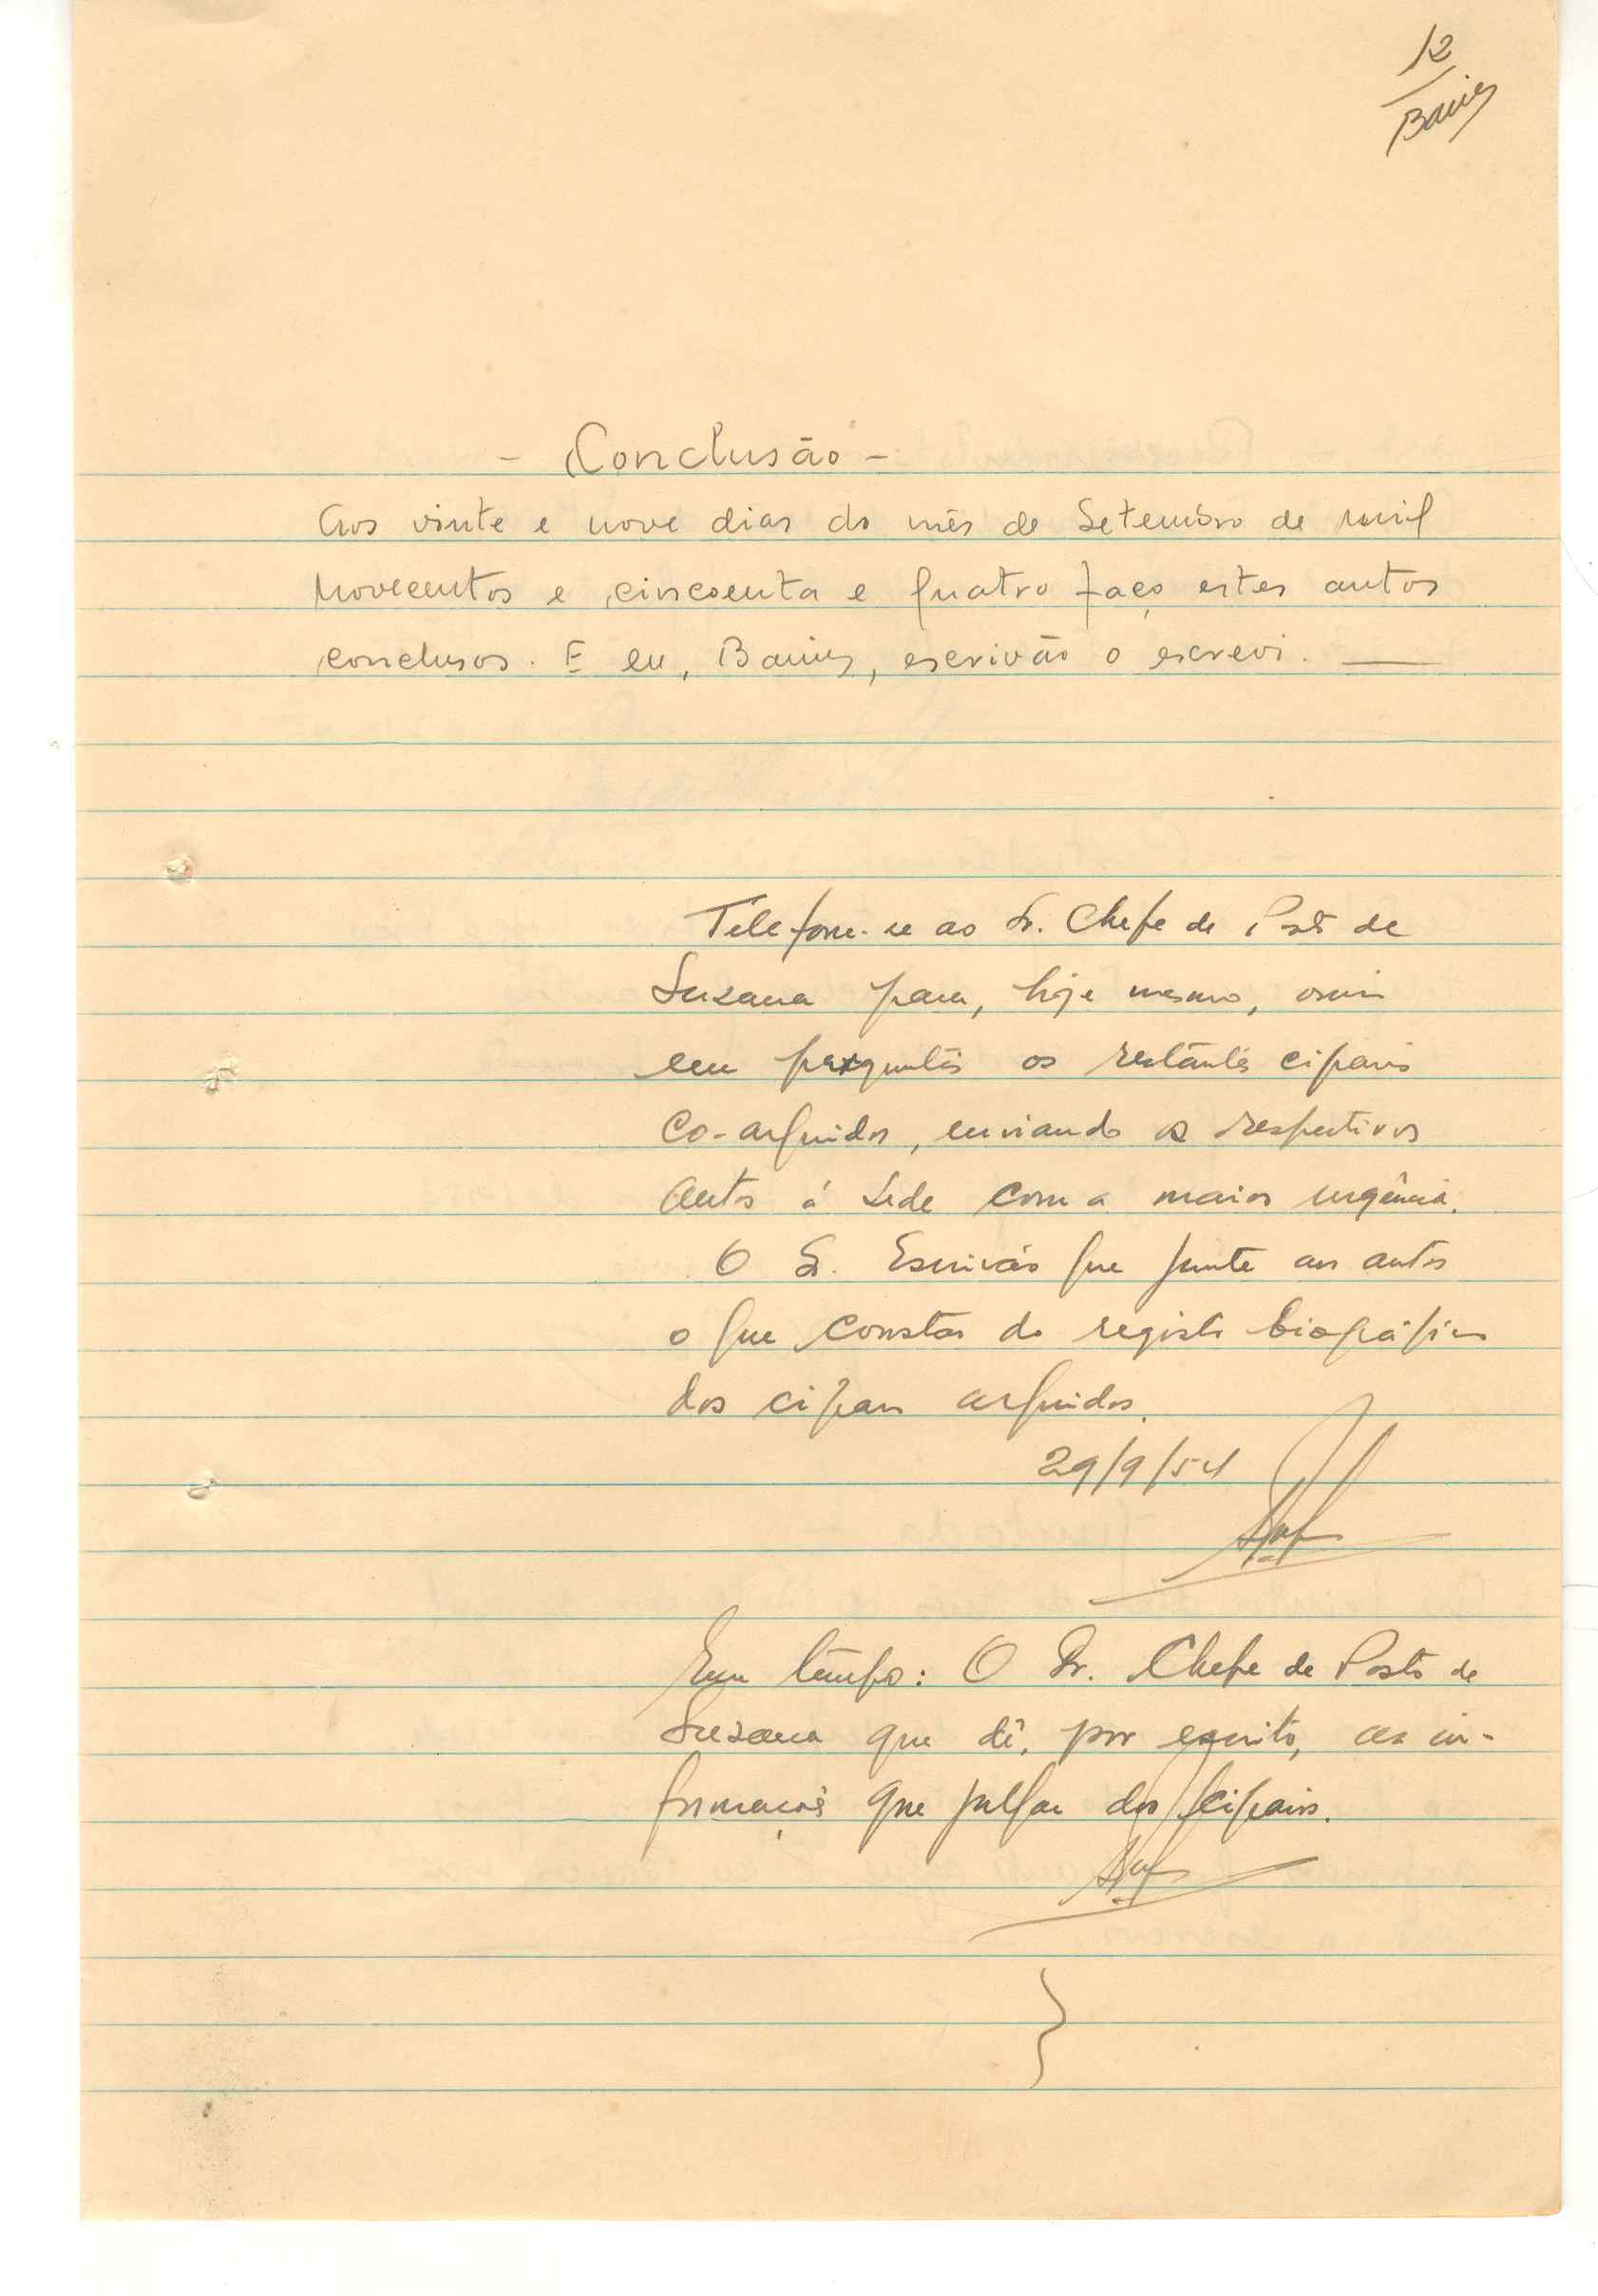 12
- Conclusão -
Aos vinte e nove dias do mês de Setembro de mil
novecentos e cincoenta e quatro faço estes autos
conclusos. E eu, , escrivão o escrevi.
Telefone-se ao Sr. Chefe de Posto de
Suzana para, hoje mesmo, ouvir
em perguntas os restantes cipais
co-arguidos, enviando os respectivos
autos á Sede com a maior urgência.
O Sr. Escrivão que junte aos autos
o que constar do registo biográfico
dos cipais arguidos.
29/9/54
Em tempo: O Sr. Chefe de Posto de
Suzana que dê, por escrito, as in-
formações que julgar dos cipais.